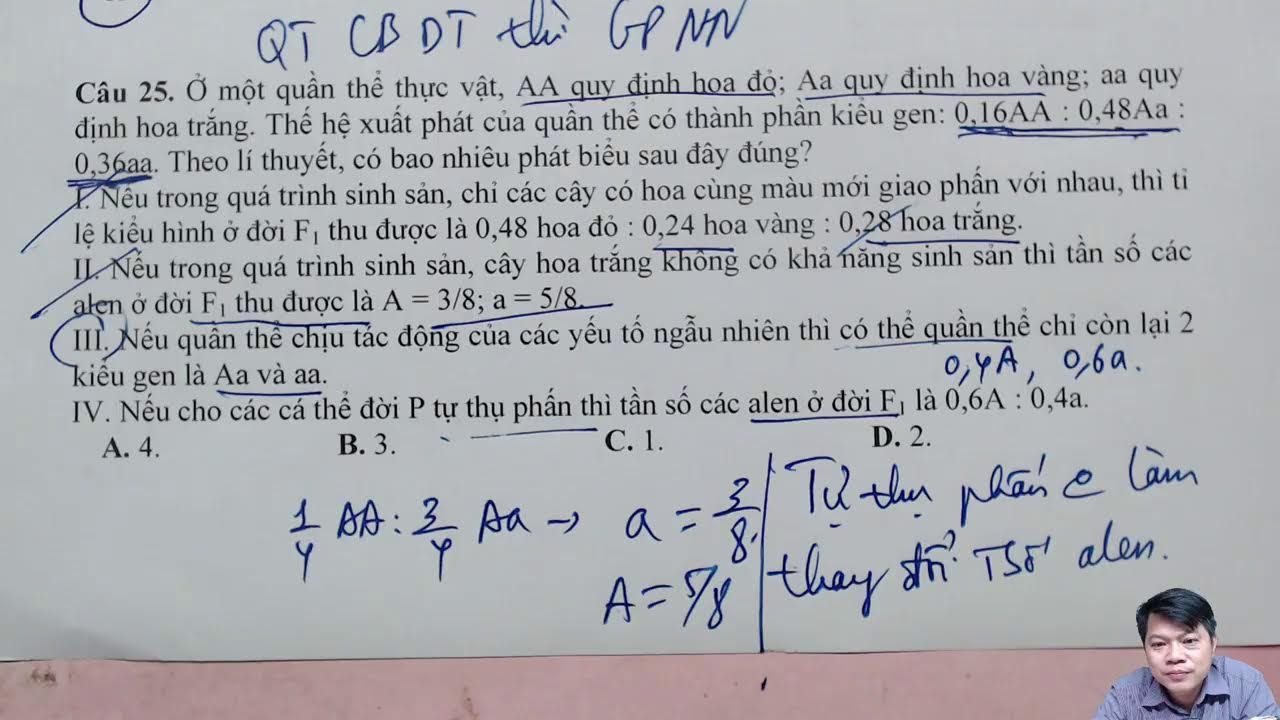 QT CB DT thì GP NN
Câu 25. Ở một quần thể thực vật, AA quy định hoa đỏ; Aa quy định hoa vàng; aa quy
định hoa trắng. Thế hệ xuất phát của quần thể có thành phần kiểu gen: 0,16AA : 0,48Aa :
0,36aa. Theo lí thuyết, có bao nhiêu phát biểu sau đây đúng?
I. Nếu trong quá trình sinh sản, chỉ các cây có hoa cùng màu mới giao phấn với nhau, thì tỉ
lệ kiểu hình ở đời F₁ thu được là 0,48 hoa đỏ : 0,24 hoa vàng : 0,28 hoa trắng.
II. Nếu trong quá trình sinh sản, cây hoa trắng không có khả năng sinh sản thì tần số các
alen ở đời F₁ thu được là A = 3/8; a = 5/8.
III. Nếu quần thể chịu tác động của các yếu tố ngẫu nhiên thì có thể quần thể chỉ còn lại 2
kiểu gen là Aa và aa.
0,4A, 0,6a.
IV. Nếu cho các cá thể đời P tự thụ phấn thì tần số các alen ở đời F₁ là 0,6A : 0,4a.
A. 4. B. 3. C. 1. D. 2.
1/4 AA : 3/4 Aa → a = 3/8.
A = 5/8
Tự thụ phấn làm
thay đổi TSố alen.